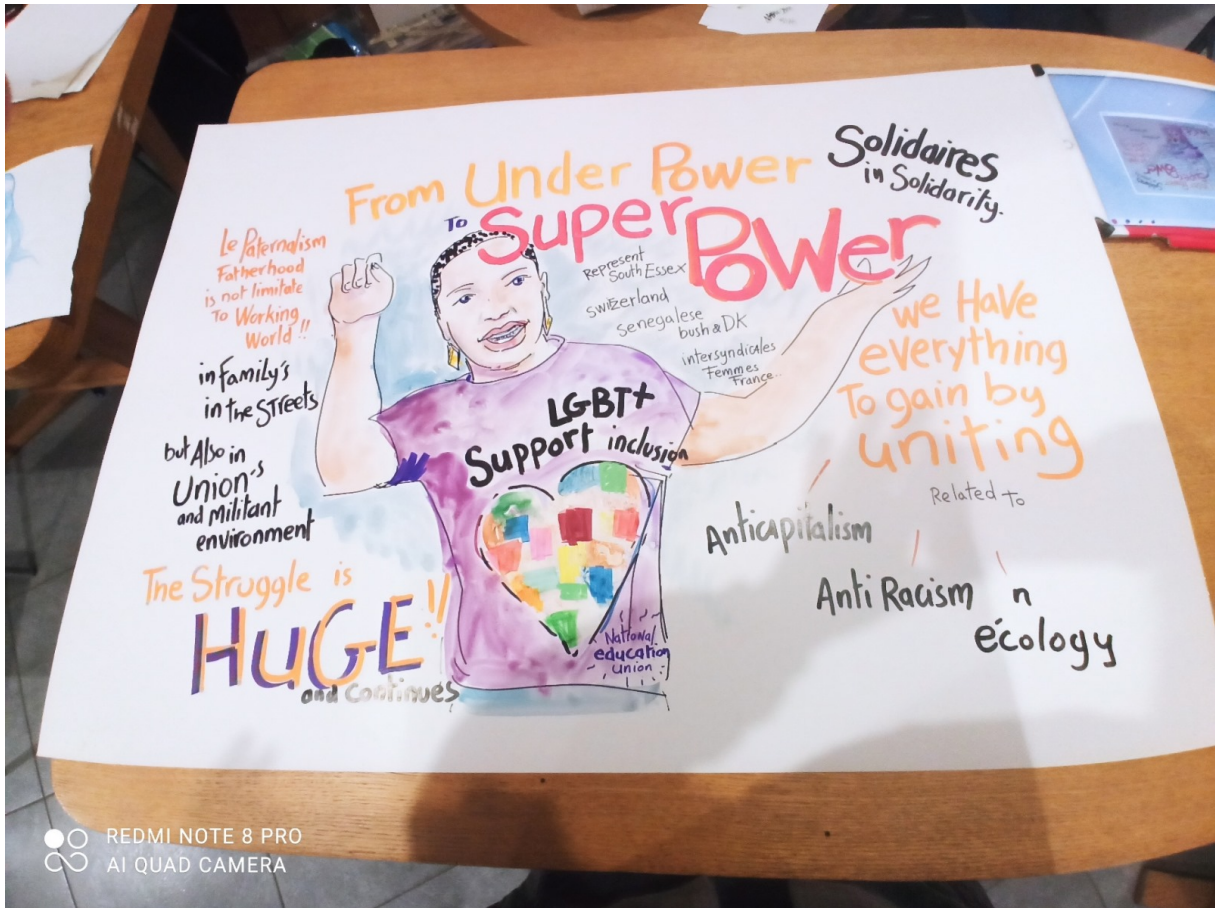 From Under Power
To Super
Power
Solidaires
in Solidarity.
Le Paternalism
Fatherhood
is not limitate
To Working
World !!
in Family's
in the STreets
but Also in
Union's
and Militant
environment
The Struggle is
HuGE!!
and continues
represent
South Essex
switzerland
senegalese
bush & DK
intersyndicales
Femmes
France...
LGBT+
Support inclusion
National
education
union
we Have
everything
To gain by
uniting
Related to
Anticapitalism
Anti Racism n
écology
REDMI NOTE 8 PRO
AI QUAD CAMERA